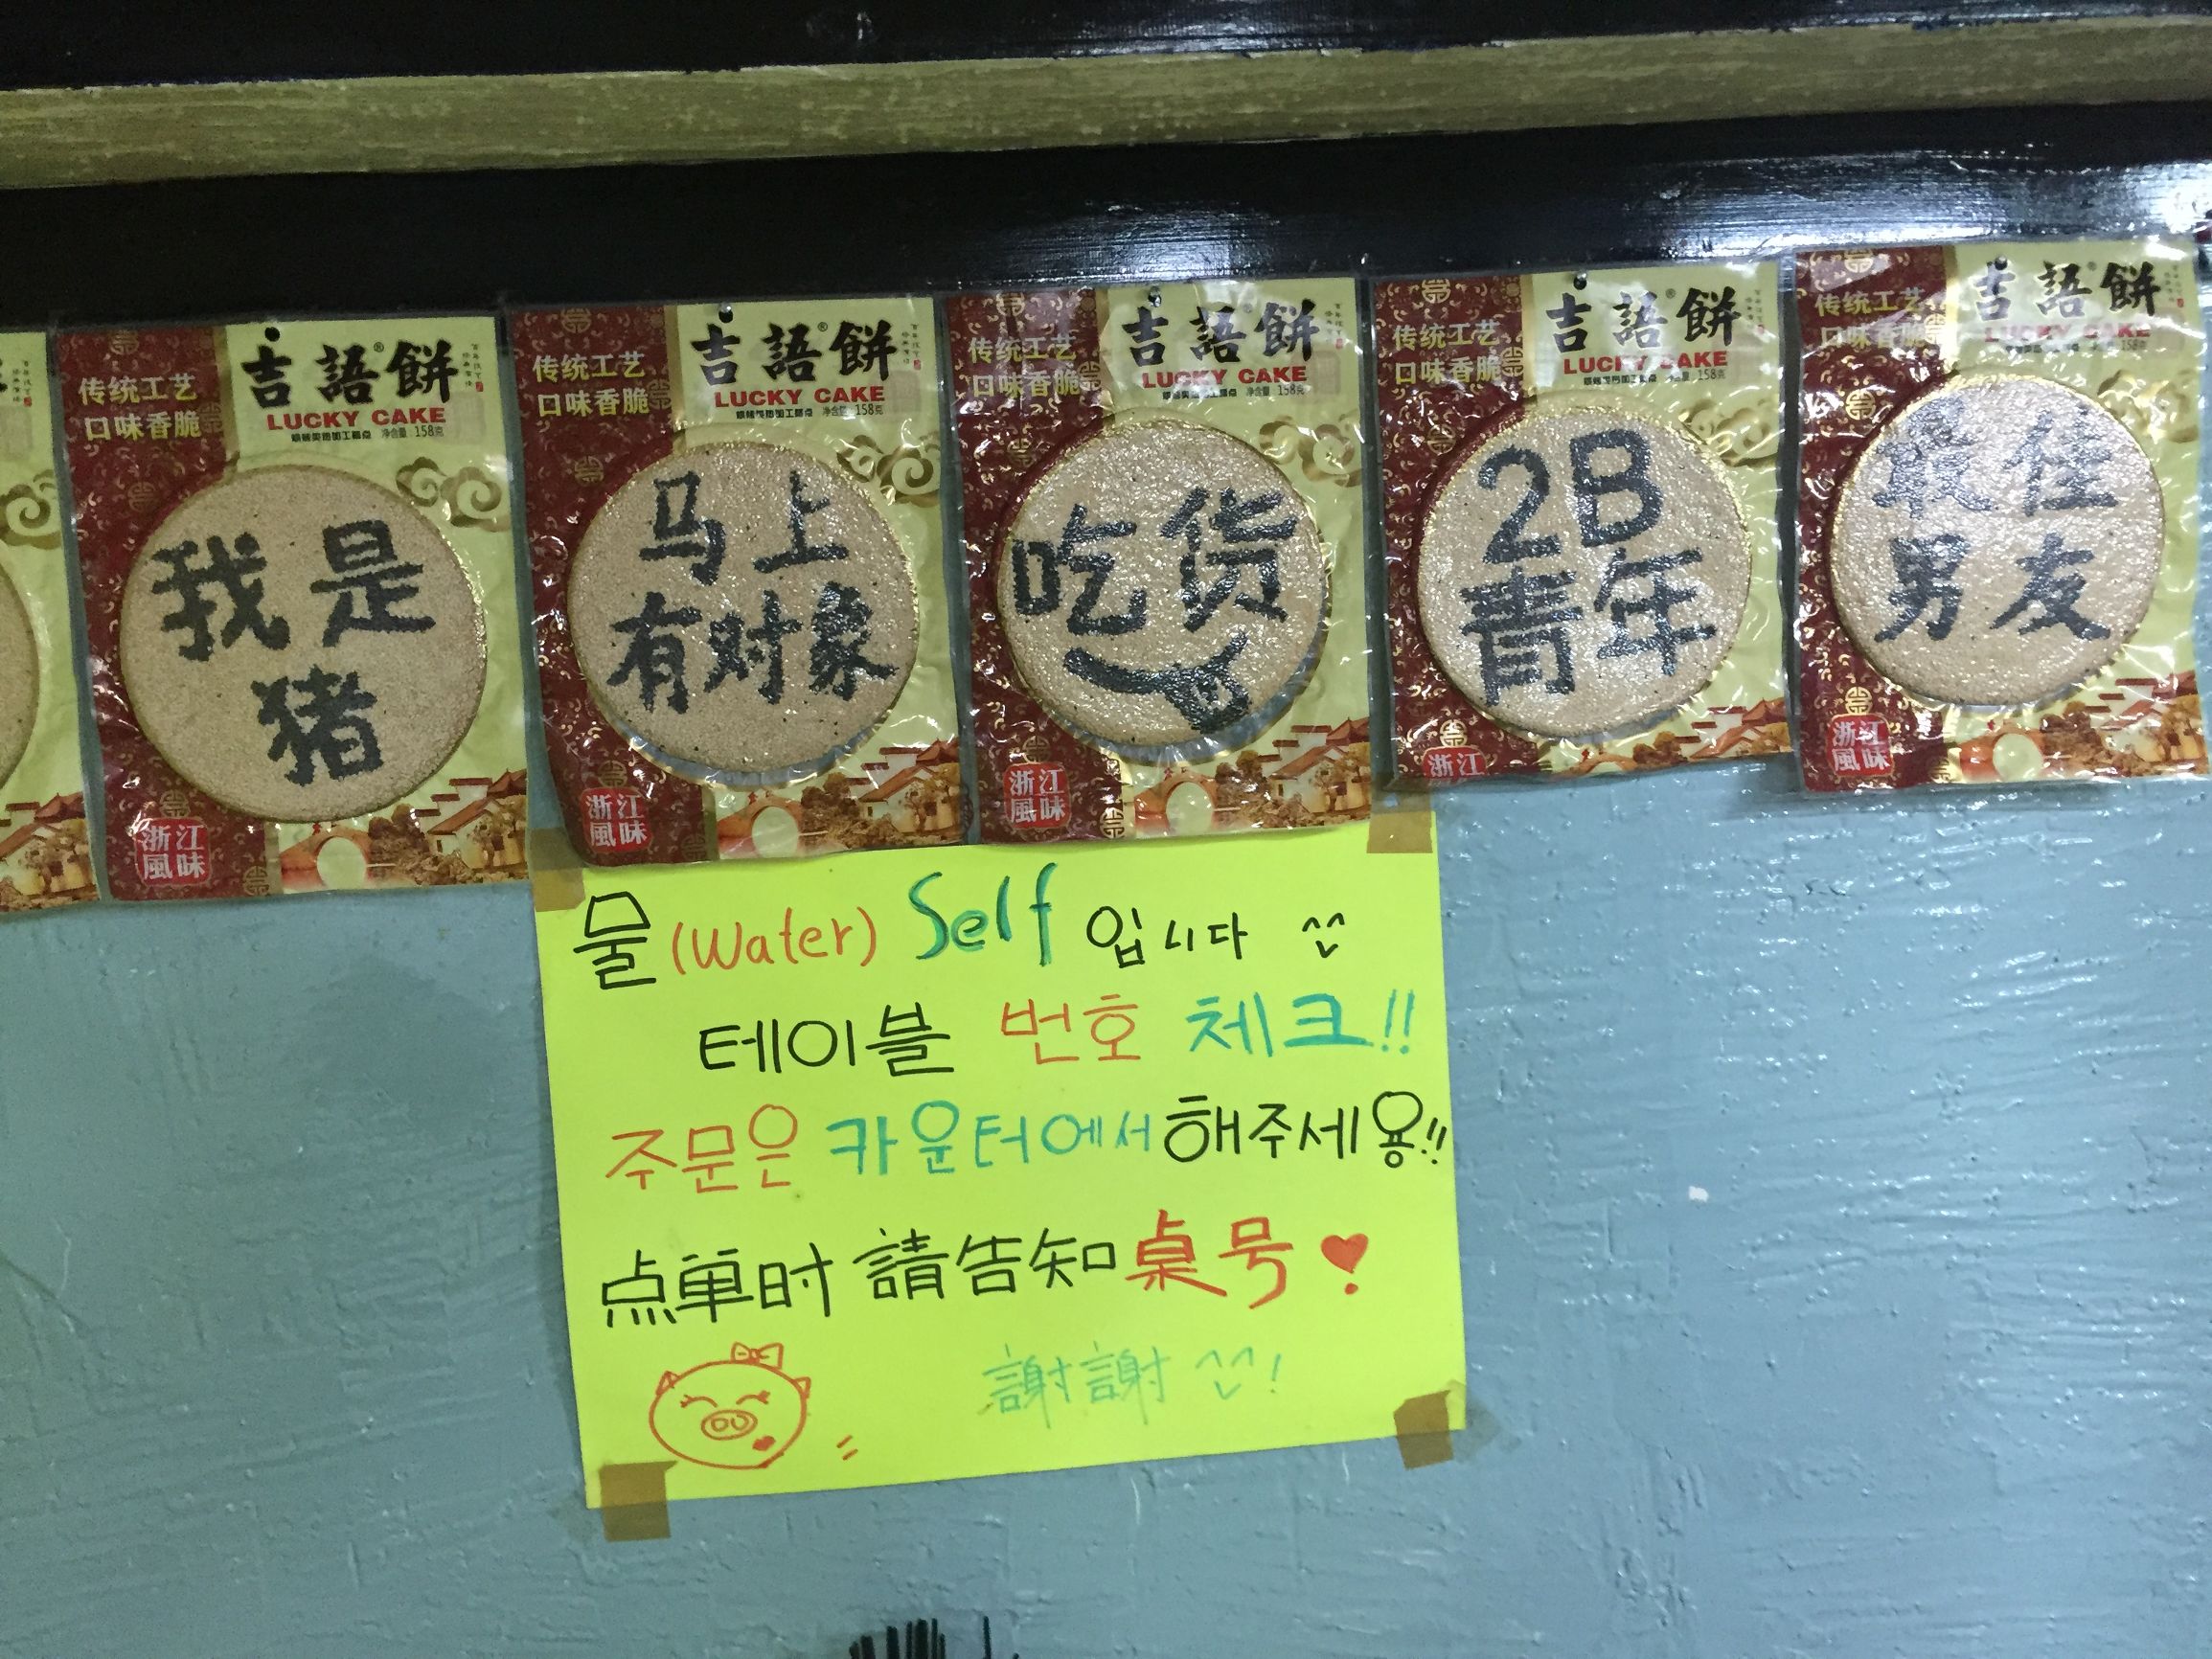 传统工艺
口味香脆
吉語®餅
LUCKY CAKE
净含量 158克
我是
猪
浙江
風味
传统工艺
口味香脆
吉語®餅
LUCKY CAKE
净含量 158克
马上
有对象
浙江
風味
传统工艺
口味香脆
吉語®餅
LUCKY CAKE
吃货
浙江
風味
传统工艺
口味香脆
吉語®餅
LUCKY CAKE
158克
2B
青年
浙江
传统工艺
口味香脆
吉語®餅
LUCKY CAKE
158克
最佳
男友
浙江
風味
물 (Water) Self 입니다 ^^
테이블 번호 체크!!
주문은 카운터에서 해주세용!!
点单时 請告知桌号♥
謝謝 ^^!